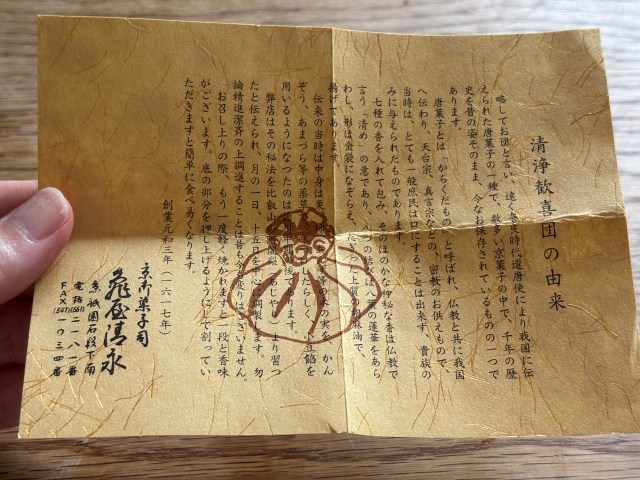 清浄歓喜団の由来
略してお団と云い、遠く奈良時代遣唐使により我国に伝
えられた唐菓子の一種で、数多い京菓子の中で、千年の歴
史を昔の姿そのまま、今なお保存されているものの一つで
あります。
唐菓子とは「からくだもの」と呼ばれ、仏教と共に我国
へ伝わり、天台宗、真言宗などの、密教のお供えもので、
当時は、とても一般庶民は口にすることは出来ず、貴族の
みに与えられたものであります。
七種の香を入れて包み、そのほのかな神秘な香は仏教で
言う「清め」の意であり、八つの結びは八葉の蓮華をあら
わし、形は金袋になぞらえ、たぎった上質の胡麻油で、
揚げてあります。
伝来の当時は中身は等の木の実を、かん
ぞう、あまづら等の薬草でしたらしく、小豆餡を
用いるようになったのは以後であります。
弊店はその秘法を比叡山の阿闍梨（あじゃり）より習っ
たと伝えられ、月の一日、十五日を中心に調製します。勿
論精進潔斉の上調進することは昔も今も変りはございません。
お召し上りの際、もう一度軽く焼かれますと一段と香味
がございます。底の部分を押し上げるようにして割ってい
ただきますと簡単に食べ易くなります。
創業元和三年（一六一七年）
京御菓子司
亀屋清永
京・祇園石段下南
電話(561)二一八一番
FAX(541)一〇三四番